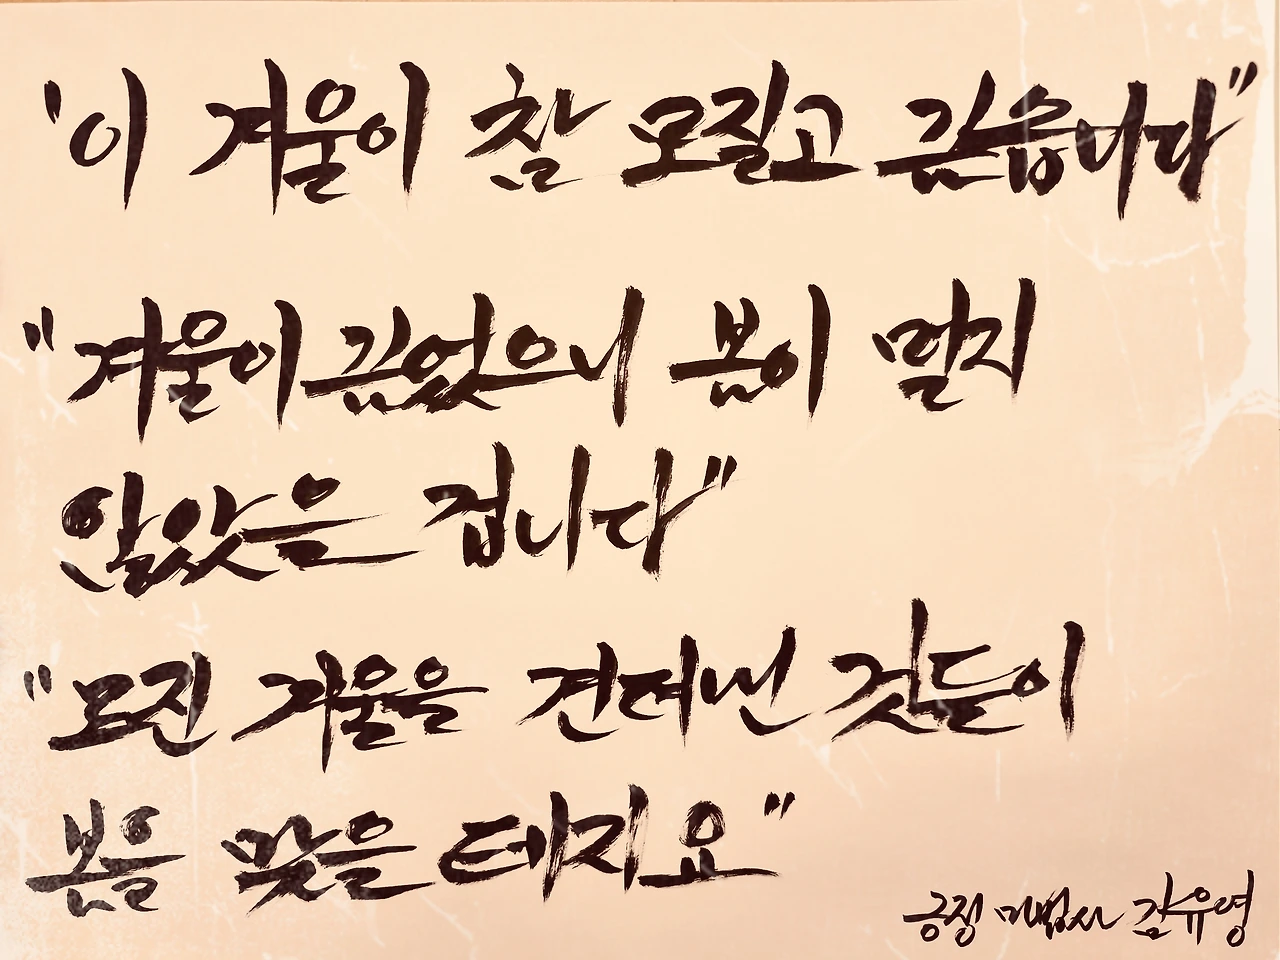 "이 겨울이 참 모질고 깊읍니다"
"겨울이 깊었으니 봄이 멀지
않았을 겁니다"
"모진 겨울을 견뎌낸 것들이
봄을 맞을 테지요"
긍정 마법사 김유영